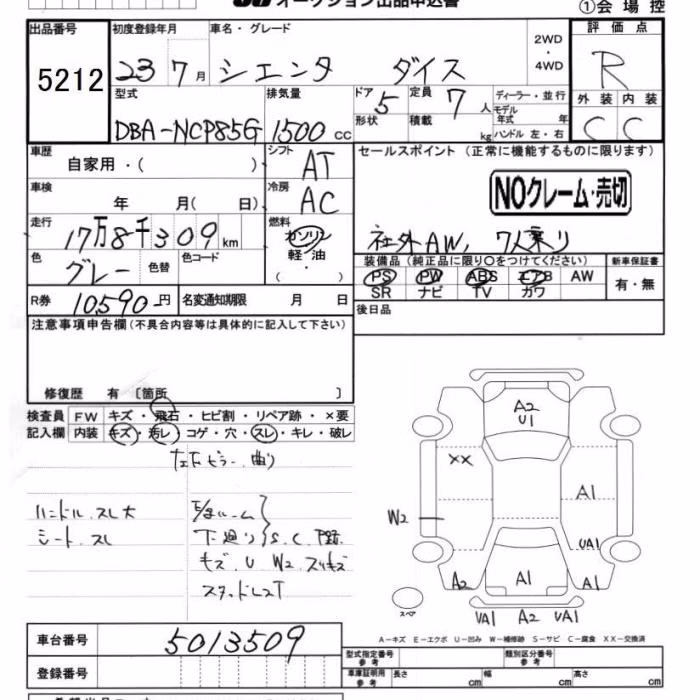 オークション出品申込書
①会場控
出品番号 5212
初度登録年月 23 7月
車名・グレード シエンタ ダイス
2WD
・
4WD
評価点 R
外装 内装
C C
型式 DBA-NCP85G
排気量 1500 cc
ドア 5
形状
定員 7 人
積載 kg
ディーラー・並行
モデル
年式 年
ハンドル 左・右
車歴 自家用・( )
シフト AT
車検 年 月( 日)
冷房 AC
走行 17万8千309 km
燃料 ガソリン
軽・油
・
( )
色 グレー 色替
色コード
R券 10,590円
名変通知期限 月 日
セールスポイント (正常に機能するものに限ります)
NOクレーム・売切
社外AW, 7人乗り
装備品(純正品に限り○をつけてください)
PS PW ABS エアB AW
SR ナビ TV カワ
新車保証書
有・無
後日品
注意事項申告欄(不具合内容等は具体的に記入して下さい)
修復歴 有 〔箇所 〕
検査員 FW キズ・飛石・ヒビ割・リペア跡・×要
記入欄 内装 キズ・汚レ・コゲ・穴・スレ・キレ・破レ
曲り
ハンドル スレ大
シート スレ
下廻り S, C,
キズ U W2 スリキズ
A2
U1
XX
A1
W2
UA1
A2 A1 A1
スペア
UA1 A2 UA1
A−キズ E−エクボ U−凹み W−補修跡 S−サビ C−腐食 XX−交換済
車台番号 5013509
登録番号
型式指定番号
参考
類別区分番号
参考
車庫証明用
参考
長さ cm 幅 cm 高さ cm